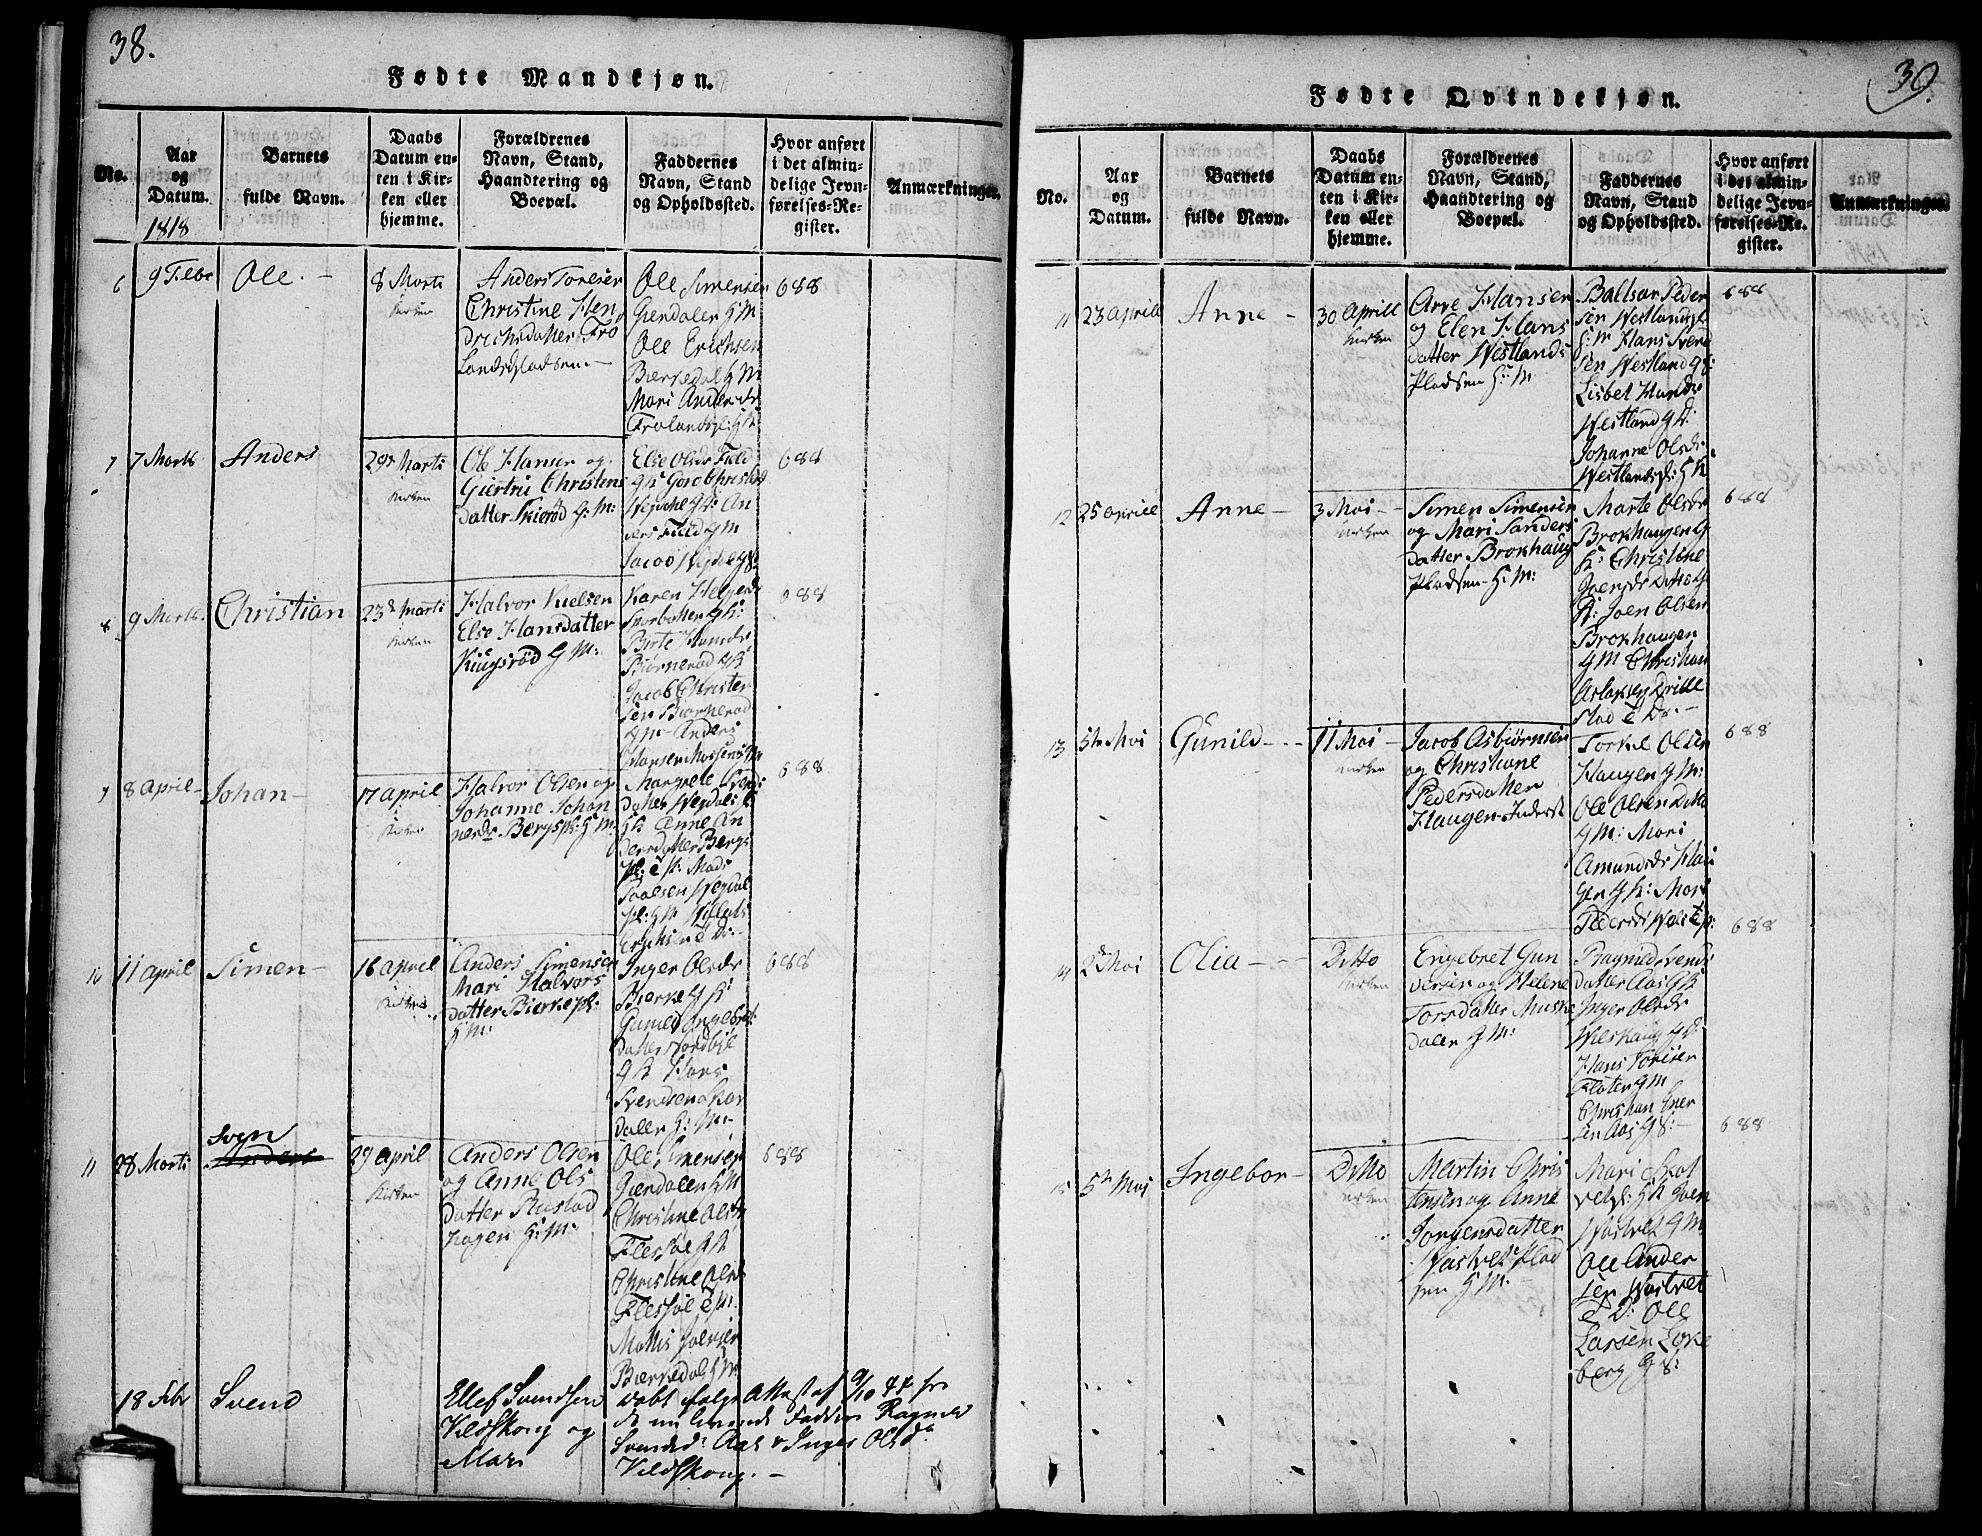 38.
Fødte Mandkjøn.
No.
Aar
og
Datum.
1818
Barnets
fulde Navn.
Daabs
Datum en-
ten i Kir-
ken eller
hjemme.
Forældrenes
Navn, Stand,
Haandtering og
Boepæl.
Faddernes
Navn, Stand
og Opholdssted.
Hvor anført
i det almin-
delige Jevn-
førelses-Re-
gister.
Anmærkninger.
6
9 Febr
Ole. -
8 Marti
Kirken
Anders Toresen
Christine Hen
drichsdatter Fro
Landspladsen -
Ole Simensen
Giendalen G M
Ole Erichsen
Bierkedal G M
Mari Andersdr
Frolandspl: G K
688
7
7 Marti
Anders
29 Marti
Kirken
Ole Hansen og
Giertru Christens
datter Skierød G: M:
Else Olsdr Fuld
G K Goro Christensd
G K: An
ders Fuld G M
Jacob G:
688
8
9 Marti
Christian
23 Marti
Kirken
Halvor Nielsen
Else Hansdatter
Kiugsrød G M:
Karen Helgersdr
G K:
Birte Hansdr
Biørnerød G K
Jacob Christen
sen Biørnerød
G M Anders
Hansen G M
688
9
8 April -
Johan -
17 April
Kirken
Halvor Olsen og
Johanne Johan
nesdr Bergspl: G M:
Margrete Svends
datter
G K Anne An
dersdatter Bergs
pl: E P: Mads
Paalsen
pl: G M
Erichsen E D: -
688
10
11 April
Simen -
16 April
Kirken
Anders Simensen
Mari Halvors
datter Bierke pl:
G M:
Inger Olsdr
Bierke G K
Gunild Engebret
datter Nordbye
G K Hans
Svendsen Skar
dalen G: M: -
688
11
28 Marti
Sven
Anders
27 April
Kirken
Anders Olsen
og Anne Ols
datter Rustad
hagen G: M:
Ole Simensen
Giendalen G M
Christine Olsdr
Flesjøe G K
Christine Olsdr
Flesjøe E P:
Mathis Joensen
Bierkedal G M
688
18 Febr
Svend
Ellef Svendsen
Vildskoug og
Mari
Døbt følge Attest af 9/10 44 fra
de nu levende Faddere Ragnild
Svendsd: Aas & Inger Olsdr
Vildskoug. -
39.
Fødte Qvindekjøn.
No.
Aar
og
Datum.
Barnets
fulde Navn.
Daabs
Datum en-
ten i Kir-
ken eller
hjemme.
Forældrenes
Navn, Stand,
Haandtering og
Boepæl.
Faddernes
Navn, Stand
og Opholdssted.
Hvor anført
i det almin-
delige Jevn-
førelses-Re-
gister.
Anmærkninger.
11
23 Aprill
Anne -
30 Aprill
Kirken
Arve Hansen
og Elen Hans
datter Westlands
Pladsen G: M
Baltsar Peder
sen Westlandspl
G: M Hans Svend
sen Westland G:
Lisbet Hansdr
Westland G K:
Johanne Olsdr
Westlandspl: G K
688
12
25 Aprill
Anne -
3 Mai -
Kirken
Simen Simensen
og Mari Sanders
datter Brokhaug
Pladsen G: M:
Marte Olsdr
Brokhaugen G
K: Christine
Joensdr Ditto G
K: Joen Olsen
Brokhaugen
G M Christian
Aslaksen Drille
stad E D: -
688
13
5te Mai
Gunild - - -
11 Mai -
Kirken
Jacob Asbiørnsen
og Christiane
Pedersdatter
Haugen Inderst
Torkel Olsen
Haugen G M:
Ole Olsen Ditto
G M: Mari
Amundsdr Hau
gen G K: Mari
Pedersdr E P:
688
14
2 Mai
Olia - - -
Ditto
Kirken
Engebret Gun
dersen og Helene
Torsdatter Muske
dalen G M:
Ragnild Svends
datter Aas G K
Inger Olsdr
G K:
Hans Toresen
Flaten G M
Christian Iver
sen Aas G: -
688
15
5te Mai
Ingebor -
Ditto
Kirken
Martin Chris
tensen og Anne
Jorgensdatter
Wastvet Plad
sen G M:
Mari Skot
vetpl: G K Sven
Wastvet G M
Ole Ander
sen Wastvet
E D: Ole
Larsen Loke
berg G:
688